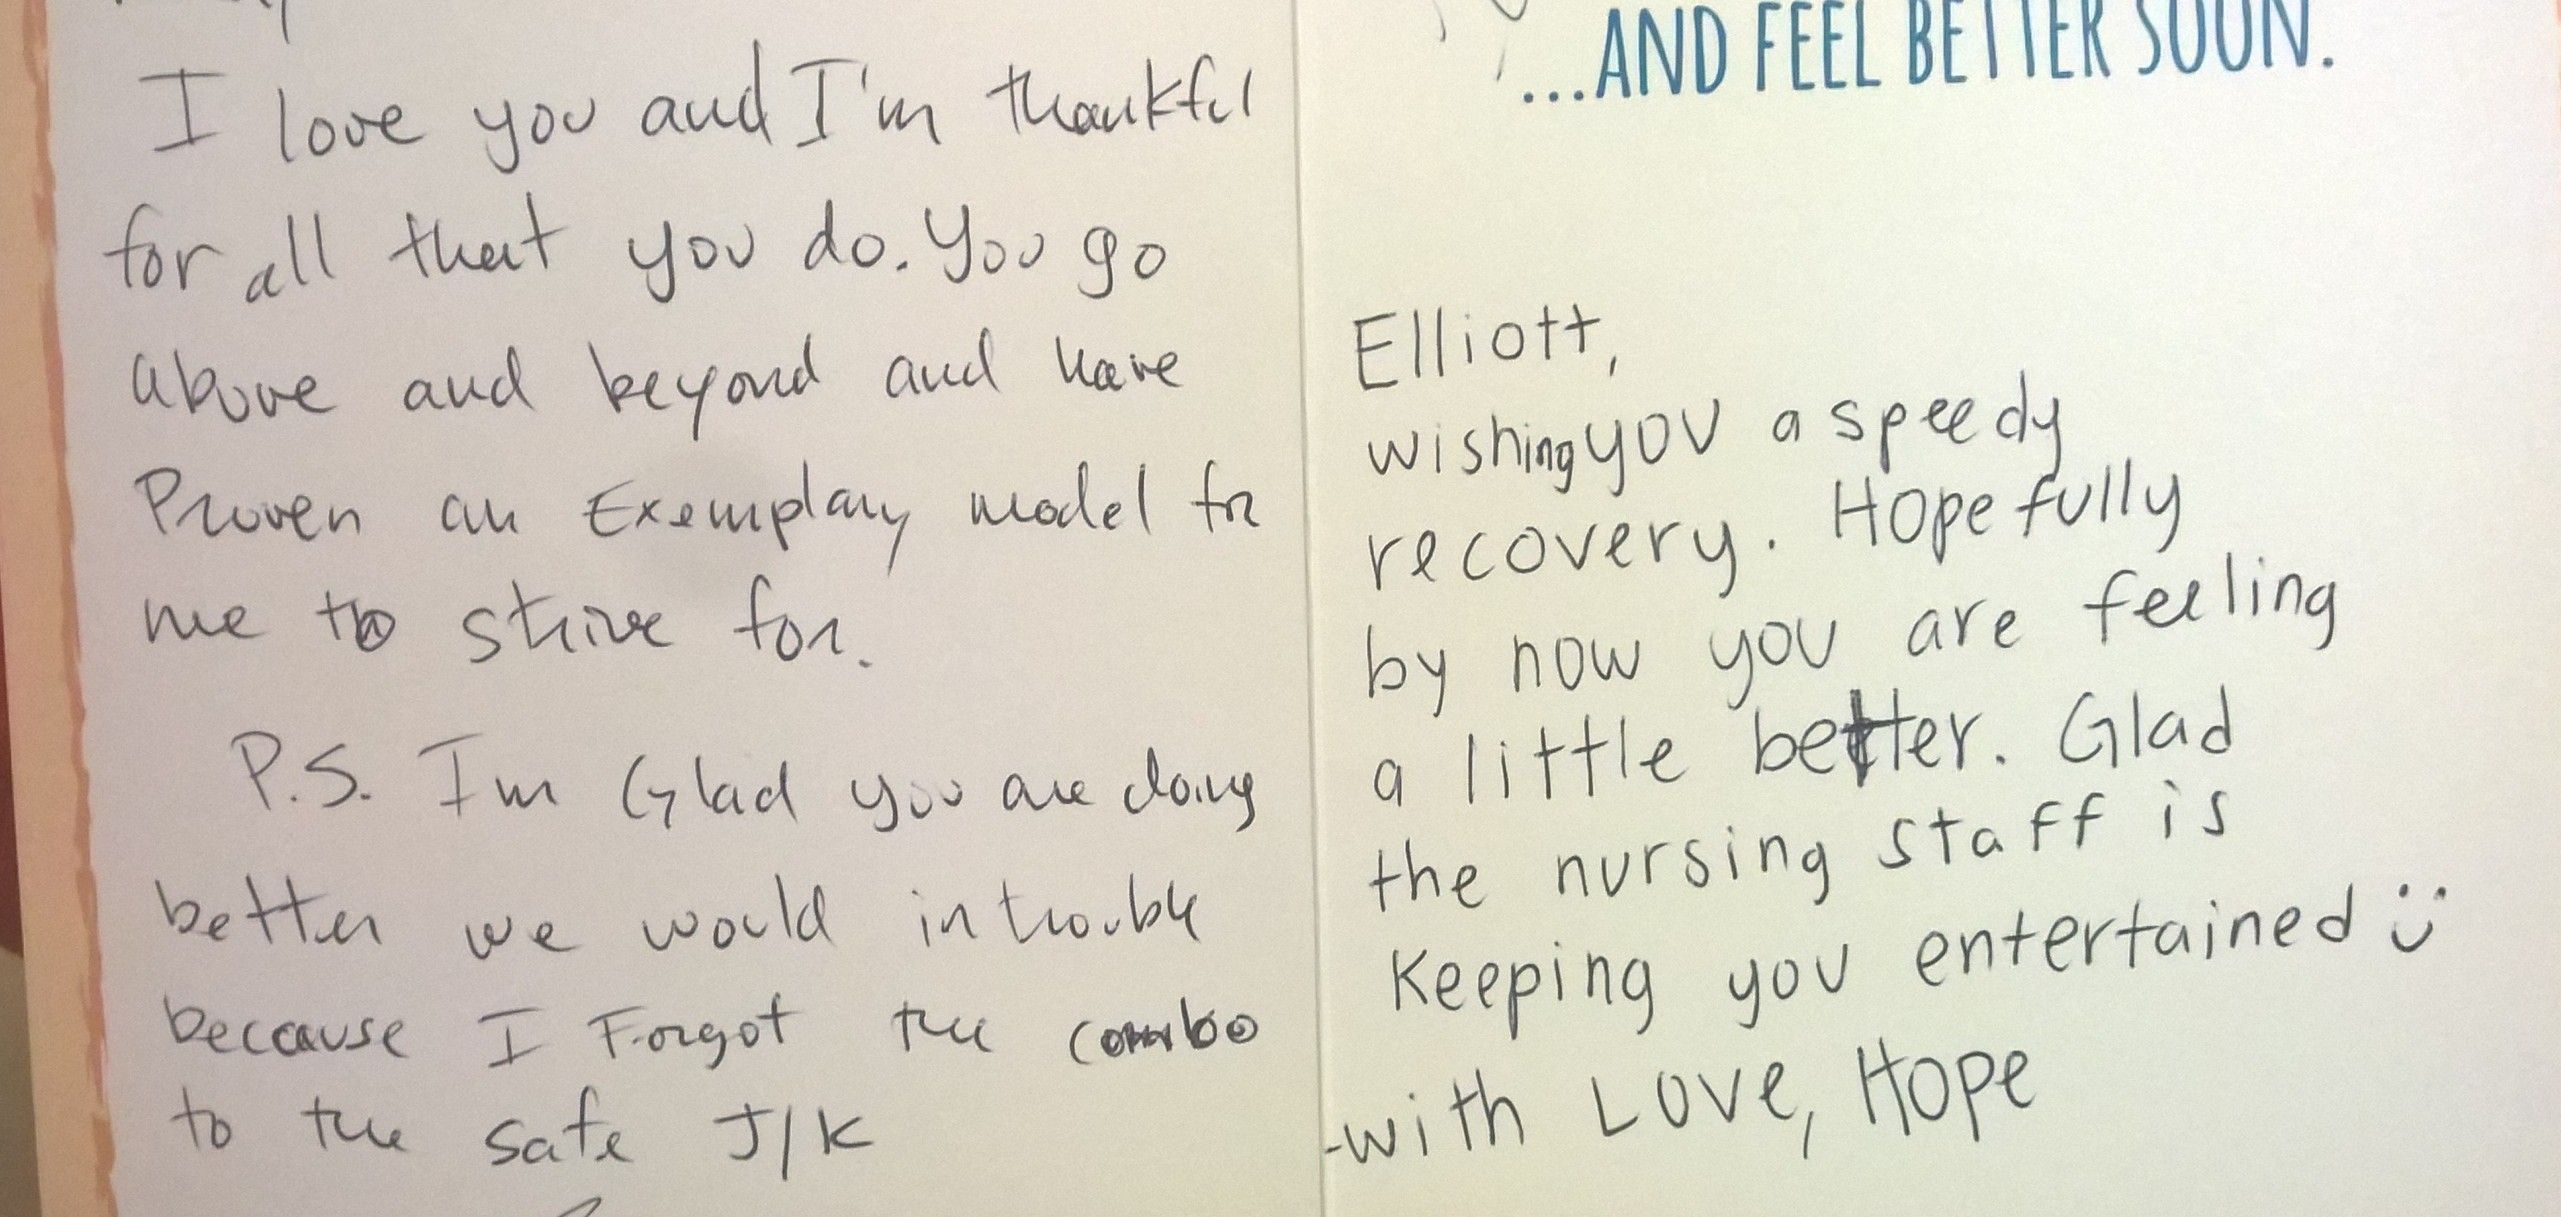 I love you and I'm thankful
for all that you do. You go
above and beyond and have
Proven an Exemplary model for
me to strive for.
P.S. I'm Glad you are doing
better we would in trouble
because I Forgot the combo
to the safe J/K
...AND FEEL BETTER SOON.
Elliott,
wishing you a speedy
recovery. Hopefully
by now you are feeling
a little better. Glad
the nursing staff is
Keeping you entertained :)
-with Love, Hope